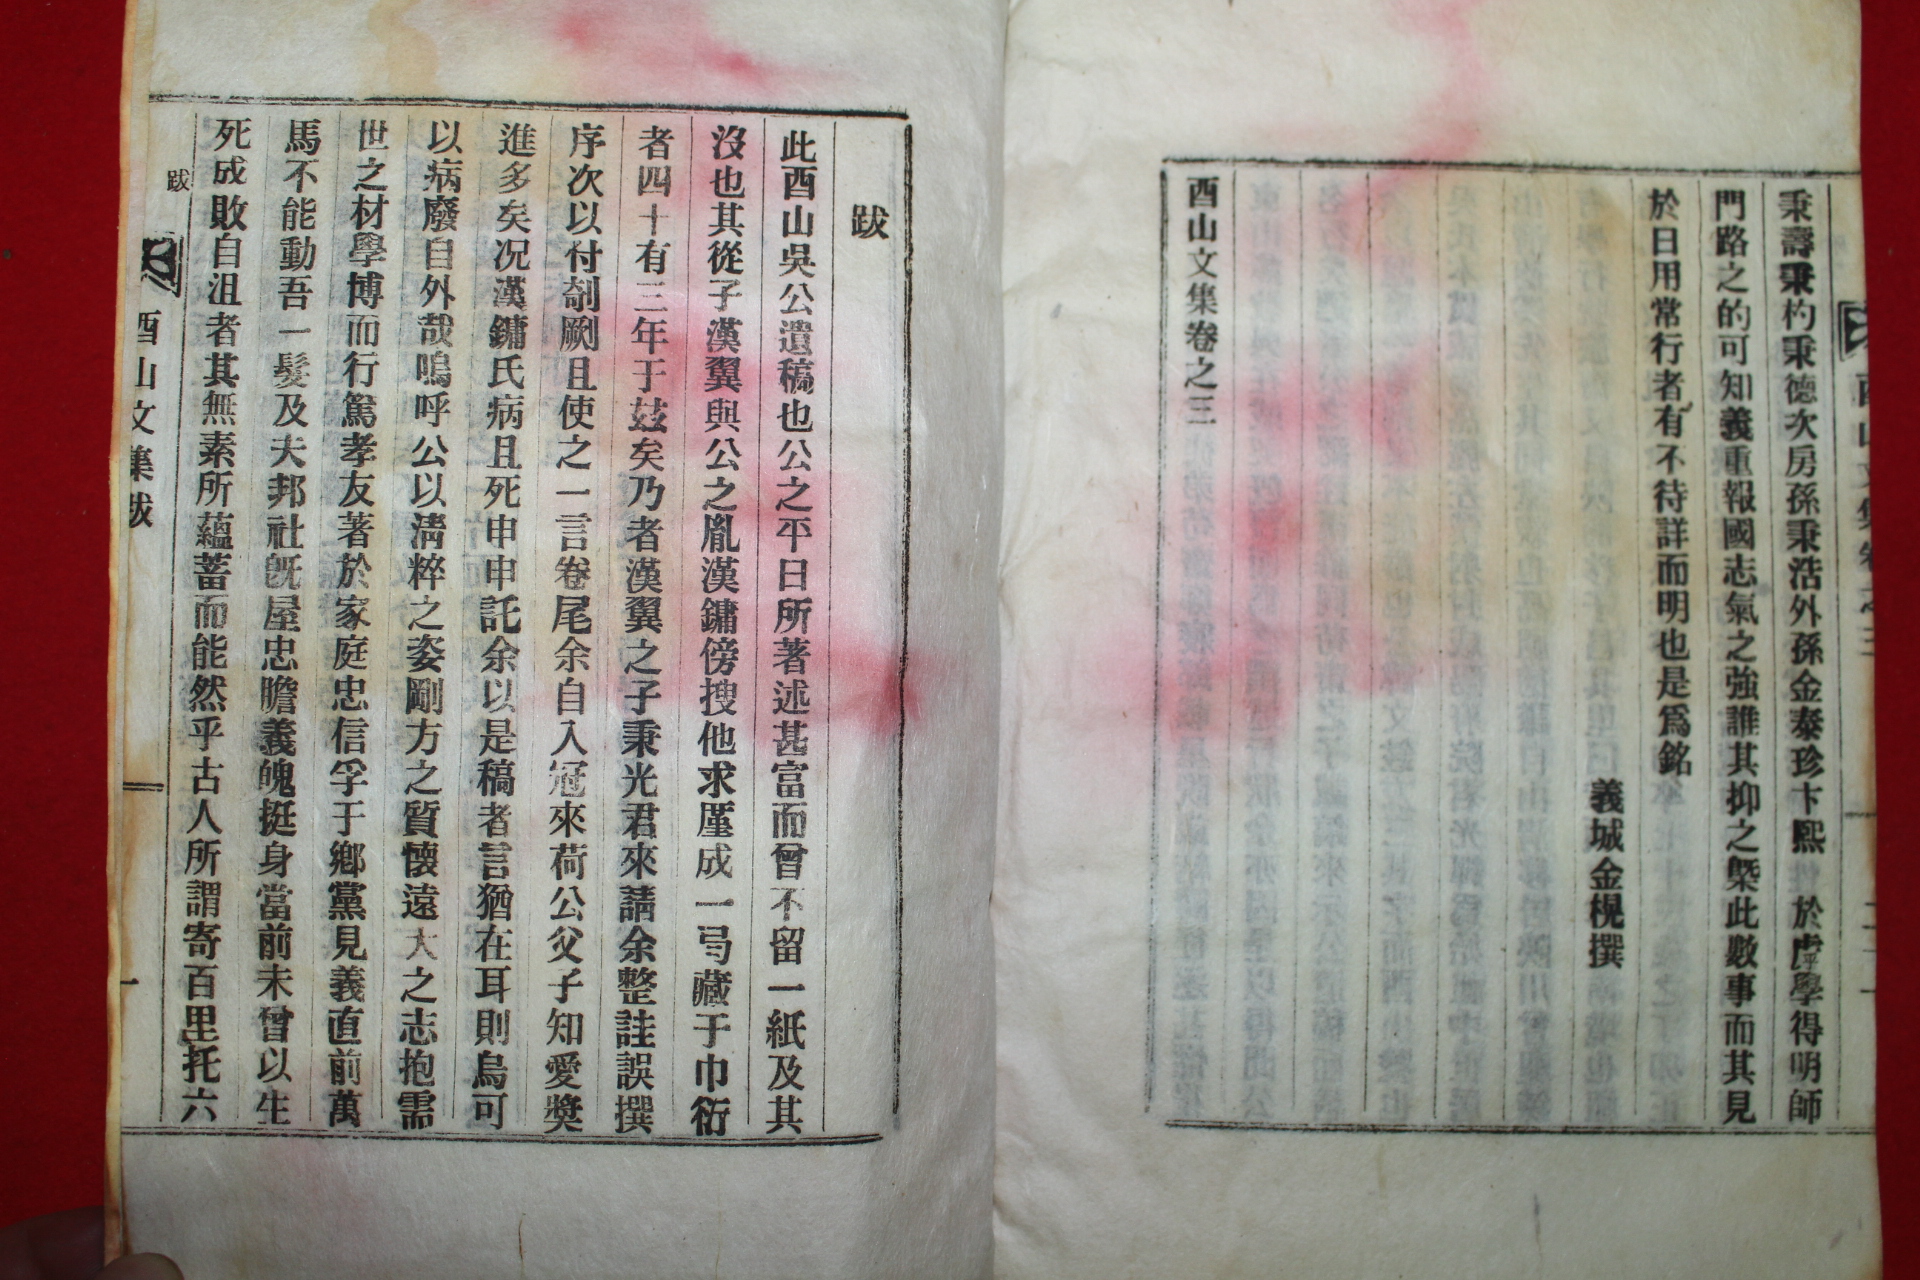 秉壽秉杓秉德次房孫秉浩外孫金泰珍卞熙 於虖學得明師
門路之的可知義重報國志氣之強誰其抑之槩此數事而其見
於日用常行者有不待詳而明也是爲銘
義城金榥撰
酉山文集卷之三
跋
此酉山吳公遺稿也公之平日所著述甚富而曾不留一紙及其
沒也其從子漢翼與公之胤漢鏞傍搜他求厪成一弓藏于巾衍
者四十有三年于玆矣乃者漢翼之子秉光君來請余整註誤撰
序次以付剞劂且使之一言卷尾余自入冠來荷公父子知愛獎
進多矣况漢鏞氏病且死申申託余以是稿者言猶在耳則烏可
以病廢自外哉嗚呼公以淸粹之姿剛方之質懷遠大之志抱需
世之材學博而行篤孝友著於家庭忠信孚于鄕黨見義直前萬
馬不能動吾一髮及夫邦社旣屋忠膽義魄挺身當前未曾以生
死成敗自沮者其無素所蘊蓄而能然乎古人所謂寄百里托六
跋
酉山文集跋
一